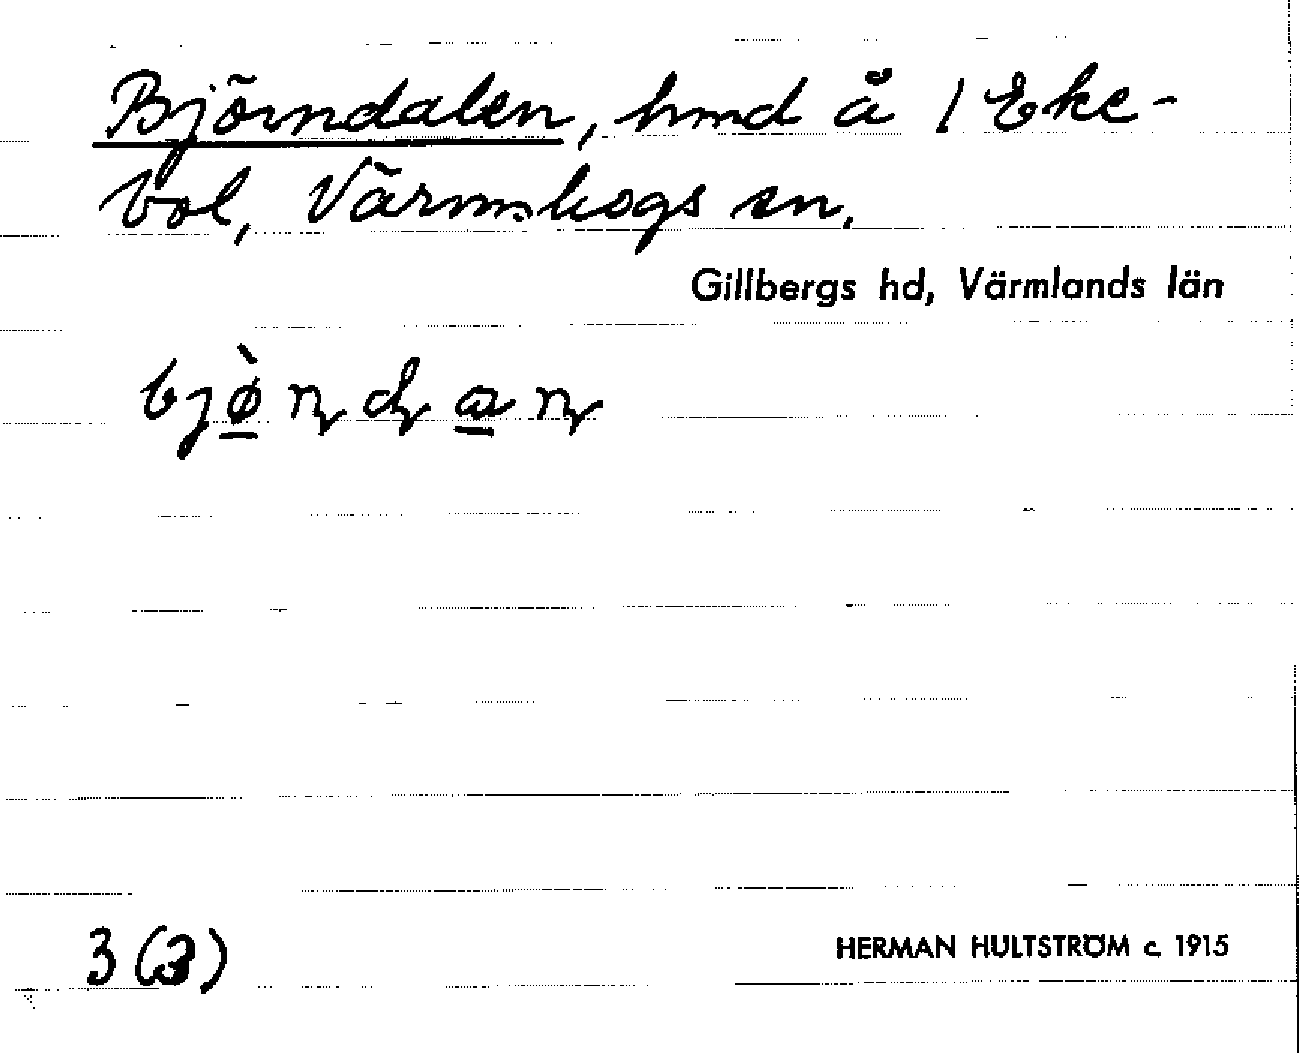 Björndalen, hmd å 1 Eke-
bol, Värmskogs sn.
Gillbergs hd, Värmlands län
bjø̀ɳɖaɳ
3 (3)
HERMAN HULTSTRÖM c. 1915